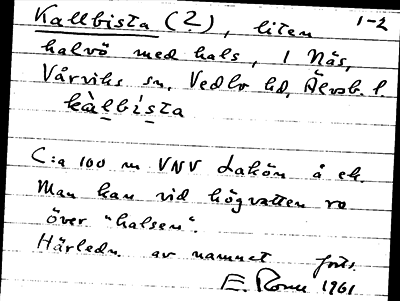 Kallbista (?), liten 1-2
halvö med hals, i Näs,
Vårviks sn, Vedbo hd, Älvsb. l.
kàlbísta
C:a 100 m VNV Lakön å ek.
Man kan vid högvatten ro
över "halsen".
Härledn. av namnet forts.
E. 1961